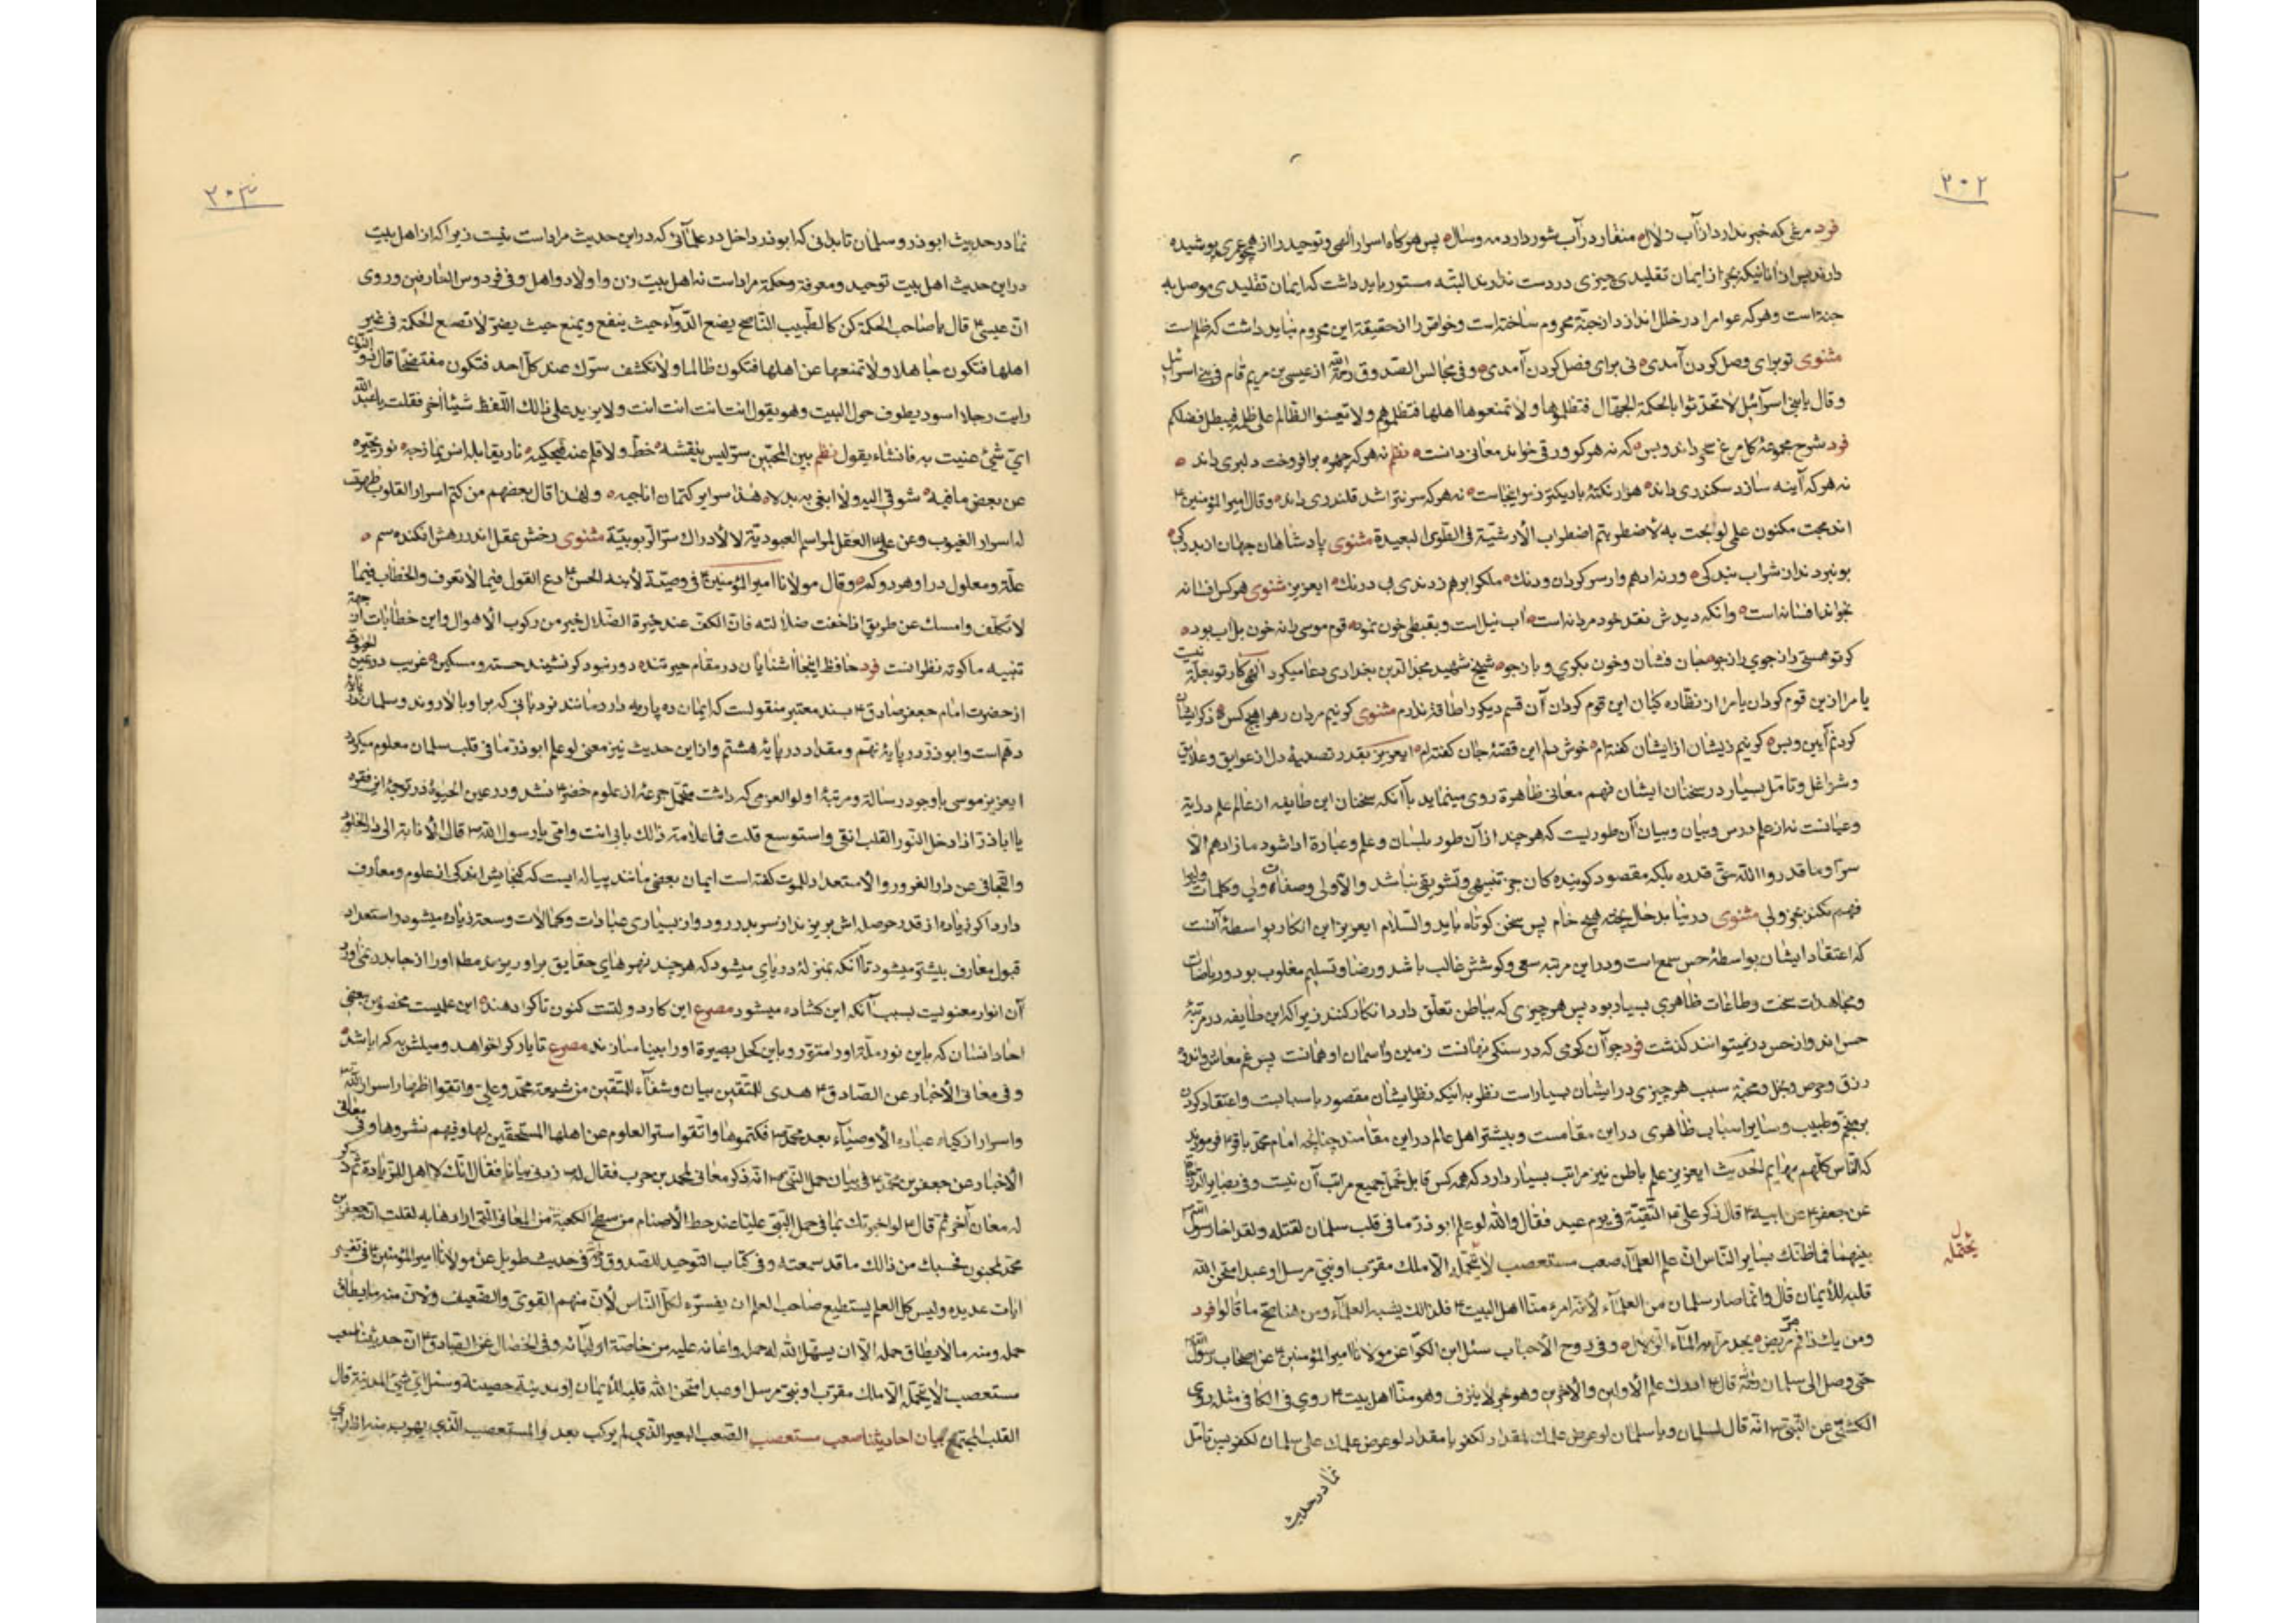 ۳۰۲
فرد مرغی که خبر ندارد از آب زلال منقار در آب شور دارد مه و سال پس هرگاه اسرار الهی و توحید را از پوشیده
دارند پس از آنانیکه بجز از ایمان تقلیدی چیزی در دست ندارند البته مستور باید داشت که ایمان تقلیدی موصل به
جنة است و هرکه عوام را در خلل اندازد از جنة محروم ساخته است و خواص را از حقیقة این محروم نباید داشت که ظلم است
مثنوی تو برای وصل کردن آمدی نی برای فصل کردن آمدی و فی مجالس الصدوق رحمه الله ان عیسی بن مریم قام فی بنی اسرائیل
و قال یا بنی اسرآئیل لا تحدثوا بالحکمة الجهال فتظلموها و لا تمنعوها اهلها فتظلموهم و لا تعینوا الظالم علی ظلمه فیبطل فضلکم
فرد شرح مجموعهٔ کل مرغ سحر داند و بس که نه هرکو ورقی خواند معانی دانست نظم نه هرکه چهره برافروخت دلبری داند
نه هرکه آینه سازد سکندری داند هزار نکتهٔ باریکتر ز مو اینجاست نه هرکه سر نتراشد قلندری داند و قال امیرالمؤمنین ع
اندمجت مکنون علم لو بحت به لاضطربتم اضطراب الارشیة فی الطوی البعیدة مثنوی پادشاهان جهان از بدرگی
بو نبردند از شراب بندگی ورنه ادهم وار سرگردان و دنگ ملک را برهم زدندی بی درنگ ایعزیز مثنوی هرکس افسانه
بخواند افسانه است وانکه دیدش نقد خود مردانه است آب نیل است و بقبطی خون نمود قوم موسی را نه خون بل آب بود
کر تو هستی رازجوی رازجو جان فشان و خون بکری و بازجو شیخ شهید مجدالدین بغدادی دعا میکرد الهی کار تو بعلّة نیست
یا مرا ازین قوم گردان یا مرا از نظاره کیان این قوم گردان آن قسم دیگر را طاقة ندارم مثنوی گر نیم مردان ره را هیچ کس ذکر ایشان
کرده‌ام اینم و بس گر نیم زیشان از ایشان گفته‌ام خوش دلم این قصهٔ جان گفته‌ام ایعزیز بقدر تصفیهٔ دل از عوایق و علایق
و شواغل و تامل بسیار در سخنان ایشان فهم معانی ظاهرة روی مینماید با آنکه سخنان این طایفه از عالم علم درایة
و عیانست نه از علم درس و بیان و بیان آن طوریست که هرچند از آن طور بلسان و علم و عبارة ادا شود ما زادهم الا
سترا و ما قدروا الله حق قدره بلکه مقصود گوینده کان جز تنبیهی و تشویقی نباشد و الا ولی و صفات ولی و کلمات ولی را
فهم نکند بجز ولی مثنوی درنیابد حال پخته هیچ خام پس سخن کوتاه باید والسلام ایعزیز این انکار بواسطهٔ آنست
که اعتقاد ایشان بواسطهٔ حس سمع است و در این مرتبه سعی و کوشش غالب باشد و رضا و تسلیم مغلوب بود و ریاضات
و مجاهدات سخت و طاعات ظاهری بسیار بود پس هر چیزی که بباطن تعلق دارد انکار کنند زیرا که این طایفه در مرتبهٔ
حس اند و از حس درنمیتوانند گذشت فرد چو آن کرمی که در سنگی نهانست زمین و آسمان او همانست پس غم معاش و اندوه
رزق و حرص و بخل و محبة سبب هر چیزی در ایشان بسیار است نظر به اینکه نظر ایشان مقصور باسبابست و اعتقاد کردن
بر منجم و طبیب و سایر اسباب ظاهری در این مقامست و بیشتر اهل عالم در این مقامند چنانچه امام محمد باقر ع فرمودند
که الناس کلهم بهایم الحدیث ایعزیز علم باطن نیز مراتب بسیار دارد که همه کس قابل جمیع مراتب آن نیست و فی بصایر الدرجات
عن جعفر ع عن ابیه ع قال ذکر علی ع التقیة فی یوم عید فقال والله لو علم ابو ذر ما فی قلب سلمان لقتله و لقد اخا رسول الله
بینهما فما ظنک بسایر الناس ان علم العلمآء صعب مستصعب لا یحتمله الا ملک مقرب او نبی مرسل او عبد امتحن الله
یحتمله
قلبه للایمان قال و انما صار سلمان من العلمآء لانه امرء منا اهل البیت ع فلذلک نسبه العلمآء و من هنا صح ما قالوا فرد
و من یک ذا فم مر مریض یجد مرا به المآء الزلال و فی روح الاحباب سئل ابن الکوا عن مولانا امیرالمؤمنین ع عن اصحاب رسول الله
حتی وصل الی سلمان رحمه الله قال ع ادرک علم الاولین والآخرین و هو بحر لا ینزف و هو منا اهل بیت ع روی فی الکافی مثله روی
الکشی عن النبی ص انه قال لسلمان و یا سلمان لو عرض علمک لمقداد لکفر یا مقداد لو عرض علمک علی سلمان لکفر پس تامل
نما در حدیث
۳۰۳
نما در حدیث ابوذر و سلمان تا بدانی که ابوذر داخل در علمآئی که در این حدیث مراد است نیست زیرا که از اهل بیت
در این حدیث اهل بیت توحید و معرفة و حکمة مراد است نه اهل بیت زن و اولاد و اهل و فی فردوس العارفین و روی
ان عیسی ع قال یا صاحب الحکمة کن کالطبیب الناصح یضع الدوآء حیث ینفع و یمنع حیث یضر لا تضع الحکمة فی غیر
اهلها فتکون جاهلا و لا تمنعها عن اهلها فتکون ظالما و لا تکشف سرک عند کل احد فتکون مفتضحا قال ذو النون
رایت رجلا اسود یطوف حول البیت و هو یقول انت انت انت انت و لا یزید علی ذالک اللفظ شیئا آخر فقلت یا عبد الله
ای شیٔ عنیت به فانشاء یقول نظم بین المحبین سر لیس یفشه خط و لا قلم عنه فیحکیه نار یقابلها انس یمازجه نور یخبره
عن بعض ما فیه شوقی الیه و لا ابغی به بدلا هذا سرایر کتمان اناجیه و لهذا قال بعضهم من کتم اسرار القلوب ظهرت
له اسرار الغیوب و عن علی ع العقل لمراسم العبودیة لا لادراک سر الربوبیة مثنوی رخش عقل اندر رهش افکنده سم
علة و معلول در او هر دو گم و قال مولانا امیرالمؤمنین ع فی وصیة لابنه الحسن ع دع القول فیما لا تعرف و الخطاب فیما
لا تکلف و امسک عن طریق اذا خفت ضلالته فان الکف عند حیرة الضلال خیر من رکوب الاهوال و این خطابات از جهة
تنبیه ما کوته نظرانست فرد حافظ اینجا آشنایان در مقام حیرتند دور نبود گر نشیند خسته و مسکین غریب در عین الحیوة
از حضرت امام جعفر صادق ع بسند معتبر منقولست که ایمان ده پایه دارد مانند نردبانی که بر او بالا روند و سلمان در پایهٔ
دهم است و ابوذر در پایهٔ نهم و مقداد در پایهٔ هشتم و از این حدیث نیز معنی لو علم ابوذر ما فی قلب سلمان معلوم میگردد
ایعزیز موسی باوجود رسالة و مرتبهٔ اولوالعزمی که داشت متحمل جرعهٔ از علوم خضر ع نشد و در عین الحیوة در توجیه این فقره
یا اباذر اذا دخل النور القلب انفتح و استوسع قلت فما علامة ذالک بابی انت و امی یا رسول الله ص قال الانابة الی دار الخلود
و التجافی عن دار الغرور و الاستعداد للموت گفته است ایمان بعضی مانند پیاله ایست که گنجایش اندکی از علوم و معارف
دارد اگر زیاده از قدر حوصله اش بریزند از سر بدر رود و از بسیاری عبادات و کمالات وسعة زیاده میشود و استعداد
قبول معارف بیشتر میشود تا آنکه بمنزلهٔ دریای میشود که هرچند نهرهای حقایق بر او ریزند مطلقا او را از جا بدر نمی‌آورد
آن انوار معنویست بسبب آنکه این کشاده میشود مصرع این کار دولتست کنون تا کرا دهند این علمیست مخصوص بعضی
احاد انسان که باین نور ملة او را منور و باین کحل بصیرة او را بینا سازند مصرع تا یار کرا خواهد و میلش به که باشد
و فی معانی الاخبار عن الصادق ع هدی للمتقین بیان و شفآء للمتقین من شیعة محمد و علی واتقوا اظهار اسرار الله تعالی
و اسرار ازکیاء عباده الاوصیآء بعد محمد ص فکتموها و اتقوا ستر العلوم عن اهلها المستحقین لها و فیهم نشروها و فی معانی
الاخبار عن جعفر بن محمد ع فی بیان حمل النبی ص انه ذکر معانی لمحمد بن حرب فقال له زدنی بیانا فقال انک لاهل للزیادة ثم ذکر
له معان آخر ثم قال ع لو اخبرتک بما فی حمل النبی علیا عند حط الاصنام من سطح الکعبة من المعانی التی ارادها به لقلت ان جعفر بن
محمد لمجنون فحسبک من ذالک ما قد سمعته و فی کتاب التوحید للصدوق فی حدیث طویل عن مولانا امیرالمؤمنین ع فی تفسیر
ایات عدیده و لیس کل العلم یستطیع صاحب العلم ان یفسره لکل الناس لان منهم القوی و الضعیف و لان منه ما یطاق
حمله و منه ما لا یطاق حمله الا ان یسهل الله له حمله و اعانه علیه من خاصة اولیآئه و فی الخصال عن الصادق ع ان حدیثنا صعب
مستصعب لا یحتمله الا ملک مقرب او نبی مرسل او عبد امتحن الله قلبه للایمان او مدینة حصینة و سئل ای شیٔ المدینة قال
القلب المجتمع بیان احادیثنا صعب مستصعب الصعب البعیر الذی لم یرکب بعد و المستصعب الذی یهرب منه اذا رای